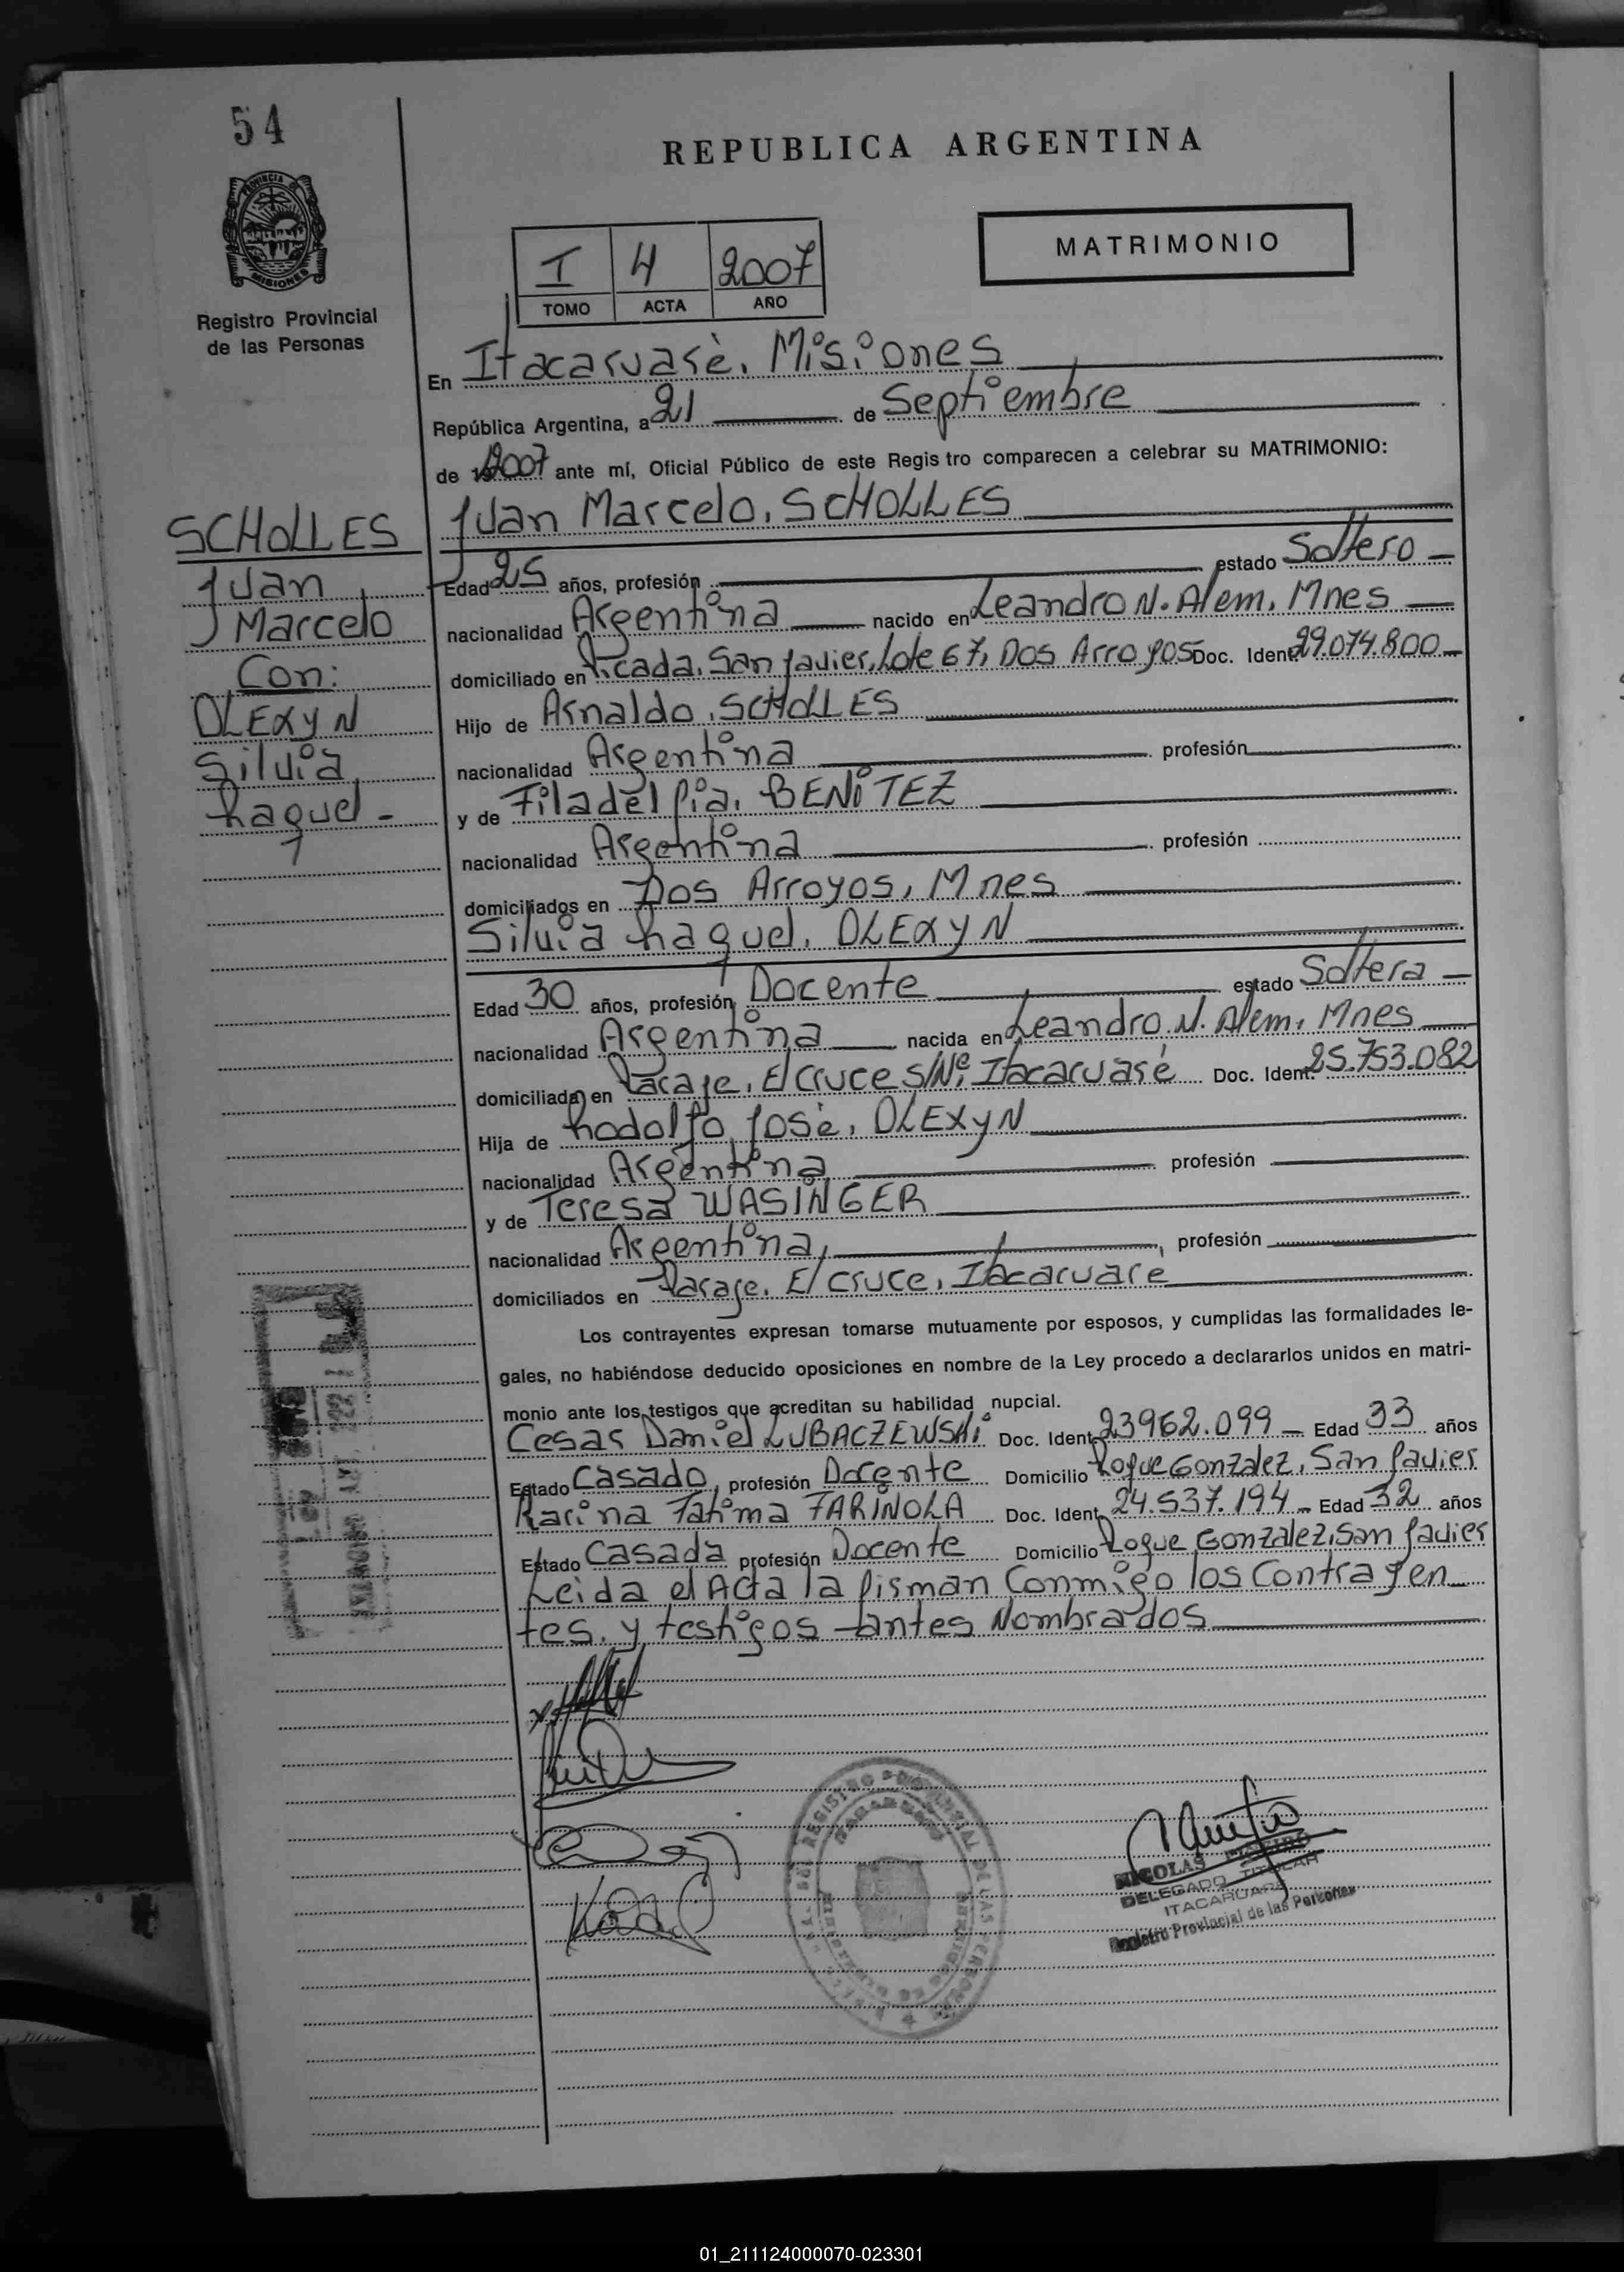 54
REPUBLICA ARGENTINA
PROVINCIA DE
MISIONES
Registro Provincial
de las Personas
MATRIMONIO
I 4 2007
TOMO ACTA AÑO
En Itacaruaré, Misiones
República Argentina, a 21 de Septiembre
de 2007 ante mí, Oficial Público de este Regis tro comparecen a celebrar su MATRIMONIO:
SCHOLLES
Juan
Marcelo
Con:
OLEXYN
Silvia
Raquel -
Juan Marcelo, SCHOLLES
Edad 25 años, profesión estado Soltero
nacionalidad Argentina nacido en Leandro N. Alem, Mnes
domiciliado en Picada, San Javier, Lote 67, Dos Arroyos Doc. Ident. 29.074.800
Hijo de Arnaldo, SCHOLLES
nacionalidad Argentina profesión
y de Filadelfia, BENITEZ
nacionalidad Argentina profesión
domiciliados en Dos Arroyos, Mnes
Silvia Raquel, OLEXYN
Edad 30 años, profesión Docente estado Soltera
nacionalidad Argentina nacida en Leandro N. Alem, Mnes
domiciliada en Paraje, El Cruce S/Nº, Itacaruaré Doc. Ident. 25.753.082
Hija de Rodolfo José, OLEXYN
nacionalidad Argentina profesión
y de Teresa WASINGER
nacionalidad Argentina, profesión
domiciliados en Paraje, El Cruce, Itacaruare
Los contrayentes expresan tomarse mutuamente por esposos, y cumplidas las formalidades le-
gales, no habiéndose deducido oposiciones en nombre de la Ley procedo a declararlos unidos en matri-
monio ante los testigos que acreditan su habilidad nupcial.
Cesar Daniel LUBACZEWSKi Doc. Ident. 23962.099 Edad 33 años
Estado Casado, profesión Docente Domicilio Roque Gonzalez, San Javier
Karina Fátima FARIÑOLA Doc. Ident. 24.537.194 Edad 32 años
Estado Casada profesión Docente Domicilio Roque Gonzalez, San Javier
Leida el Acta la firman Conmigo los Contrayen
tes, y testigos antes Nombrados
NICOLAS
DELEGADO TITULAR
ITACARUARE
Registro Provincial de las Personas
01_211124000070-023301